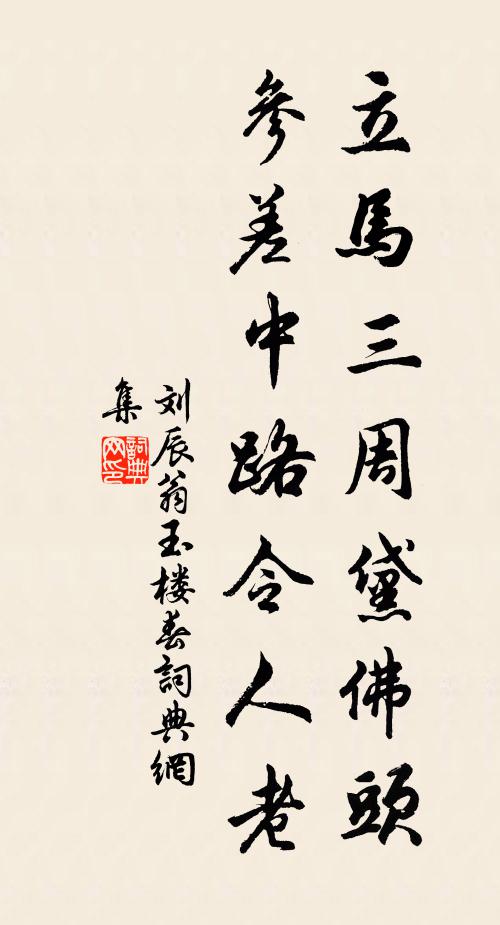 立馬三周黛佛頭
參差中路令人老
刘辰翁玉楼春詞典網
集
詞典网印